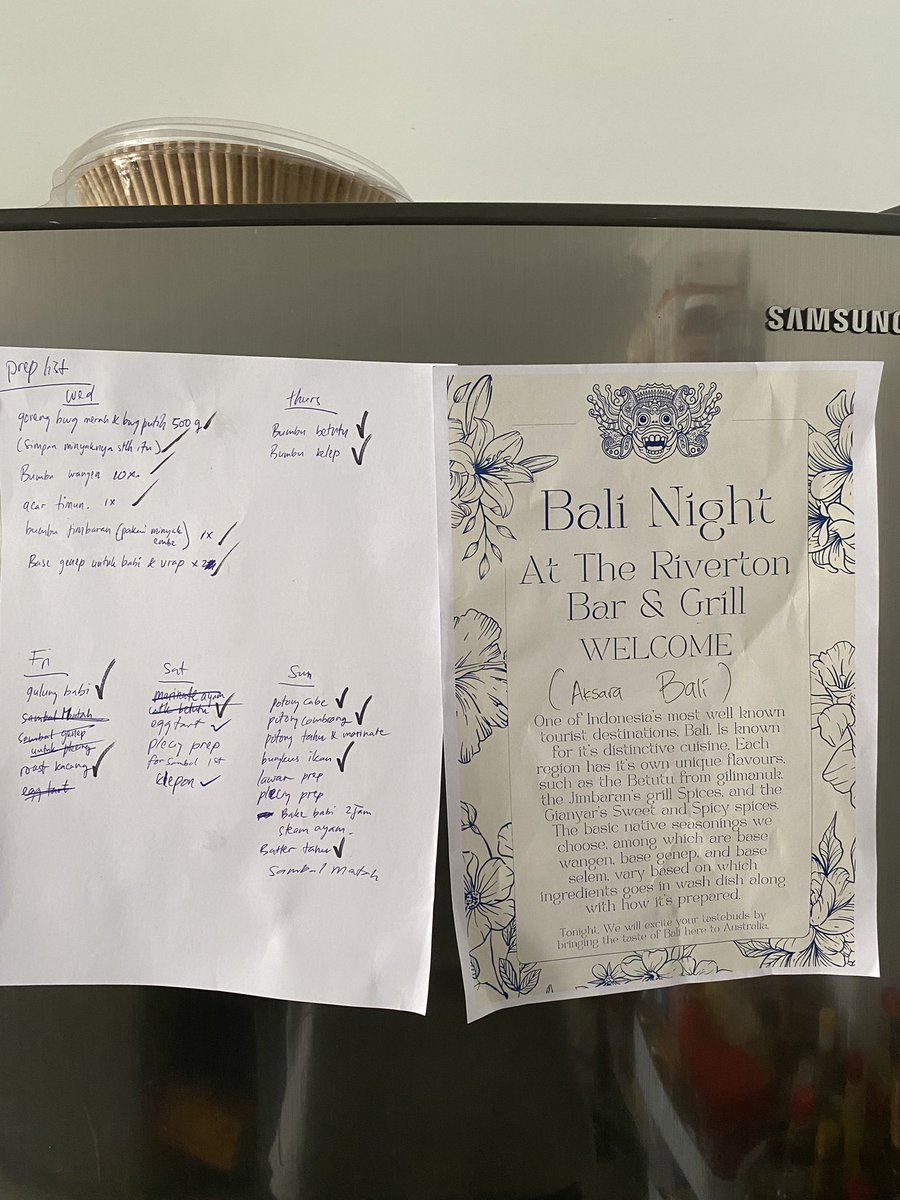 SAMSUNG
prep list
Wed
goreng bwg merah & bwg putih 500 g
(simpan minyaknya stlh itu)
Bumbu wangen 10x.
acar timun. 1x
bumbu jimbaran (pakai minyak
1x
Base genep untuk babi & urap x2
Thurs
Bumbu betutu
Bumbu kelep
Fri
gulung babi
sambal Matah
sambal
untuk
roast kacang
egg tart
Sat
marinate ayam
utk betutu
egg tart
plecy prep
for sambal 1st
klepon
Sun
potong cabe
potong
potong tahu & marinate
bungkus ikan
lawar prep
plecy prep
Bake babi 2jam
steam ayam.
Batter tahu
Sambal matah
Bali Night
At The Riverton
Bar & Grill
WELCOME
(Aksara Bali)
One of Indonesia's most well known
tourist destinations, Bali. Is known
for it's distinctive cuisine. Each
region has it's own unique flavours,
such as the Betutu from gilimanuk,
the Jimbaran's grill Spices, and the
Gianyar's Sweet and Spicy spices.
The basic native seasonings we
choose, among which are base
wangen, base genep, and base
selem, vary based on which
ingredients goes in wash dish along
with how it's prepared.
Tonight, We will excite your tastebuds by
bringing the taste of Bali here to Australia.